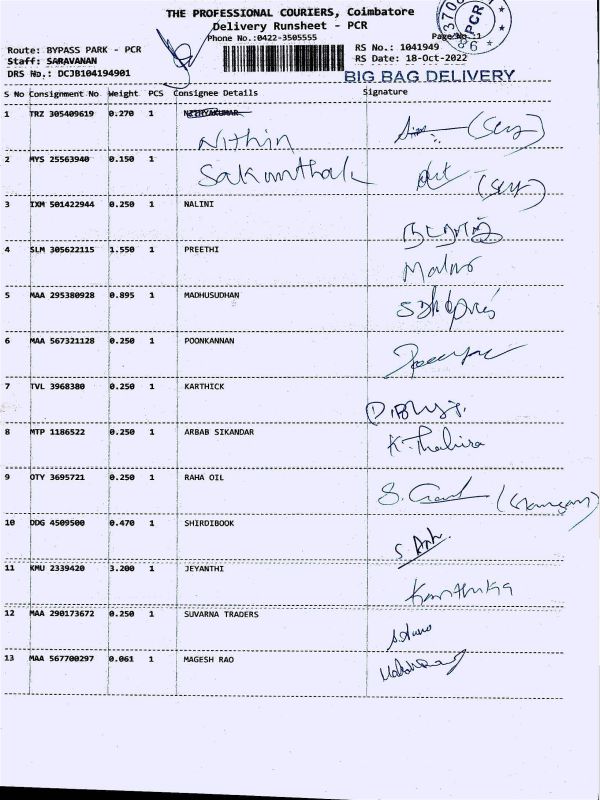 THE PROFESSIONAL COURIERS, Coimbatore
Delivery Runsheet - PCR
Phone No.:0422-3505555
Page No.:1
PCR
Route: BYPASS PARK - PCR
Staff: SARAVANAN
DRS No.: DCJB104194901
RS No.: 1041949
RS Date: 18-Oct-2022
BIG BAG DELIVERY
S No Consignment No Weight PCS Consignee Details Signature
1 TRZ 305409619 0.270 1 NITHYAKUMAR
Nithin
2 MYS 25563940 0.150 1 Sakunthala
3 IXM 501422944 0.250 1 NALINI
4 SLM 305622115 1.550 1 PREETHI
5 MAA 295380928 0.895 1 MADHUSUDHAN
6 MAA 567321128 0.250 1 POONKANNAN
7 TVL 3968380 0.250 1 KARTHICK
8 MTP 1186522 0.250 1 ARBAB SIKANDAR K. Thahira
9 OTY 3695721 0.250 1 RAHA OIL
10 DDG 4509500 0.470 1 SHIRDIBOOK
11 KMU 2339420 3.200 1 JEYANTHI Karthika
12 MAA 290173672 0.250 1 SUVARNA TRADERS
13 MAA 567700297 0.061 1 MAGESH RAO